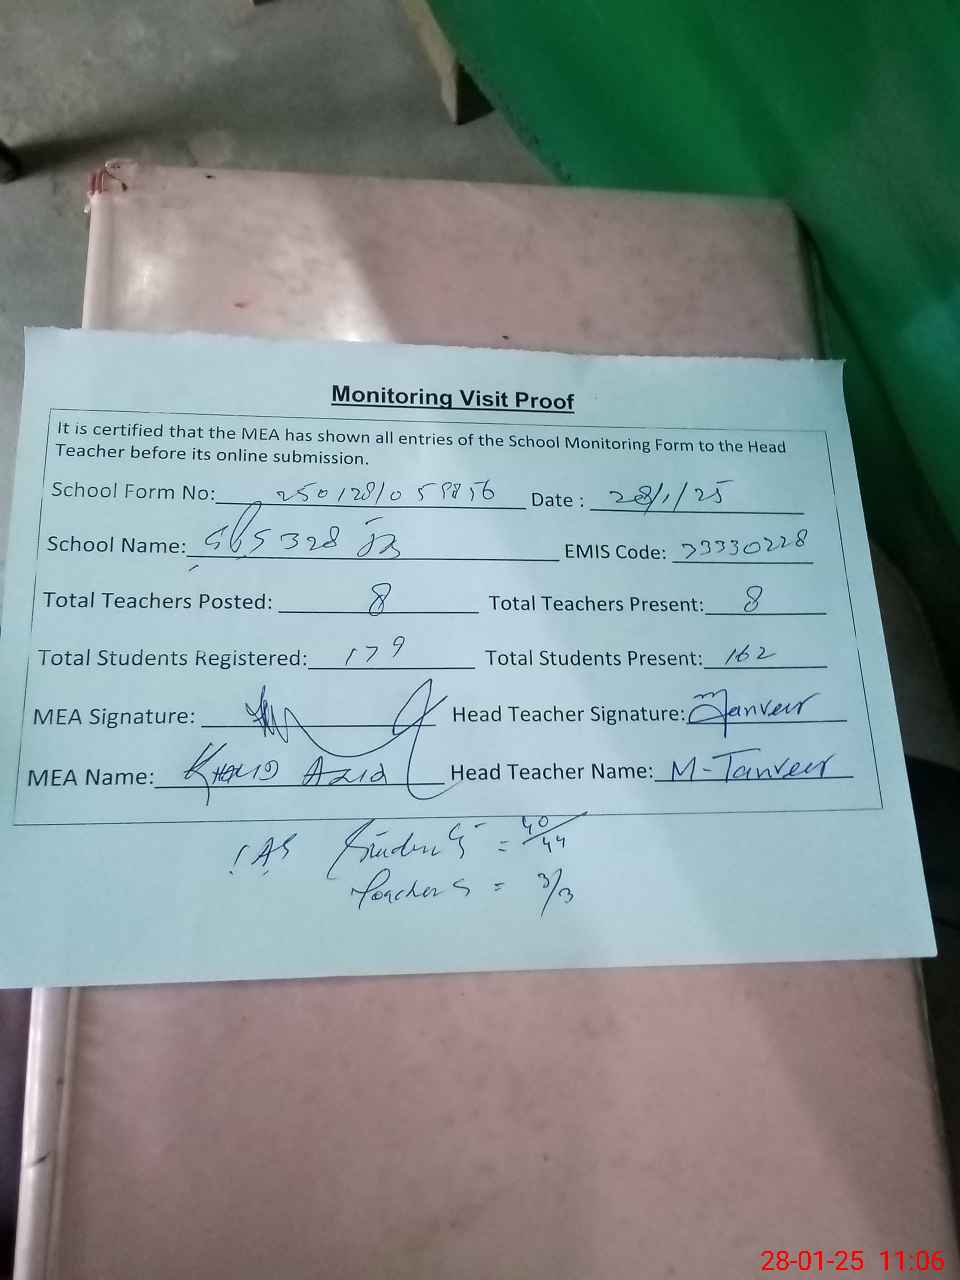 Monitoring Visit Proof
It is certified that the MEA has shown all entries of the School Monitoring Form to the Head
Teacher before its online submission.
School Form No: Date : 28/1/25
School Name: 328 EMIS Code: 23330228
Total Teachers Posted: 8 Total Teachers Present: 8
Total Students Registered: 179 Total Students Present: 162
MEA Signature: Head Teacher Signature: Tanveer
MEA Name: Khalid Aziz Head Teacher Name: M-Tanveer
Students = 40/44
Teachers = 3/3
28-01-25 11:06